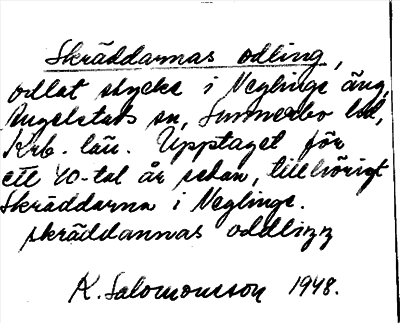 Skräddarnas odling,
odlat stycke i Neglinge äng,
Angelstads sn, Sunnerbo hd,
Krb. län. Upptaget för
ett 40-tal år sedan, tillhörigt
Skräddarna i Neglinge.
skräddannas oddlizz
K. Salomonsson 1948.